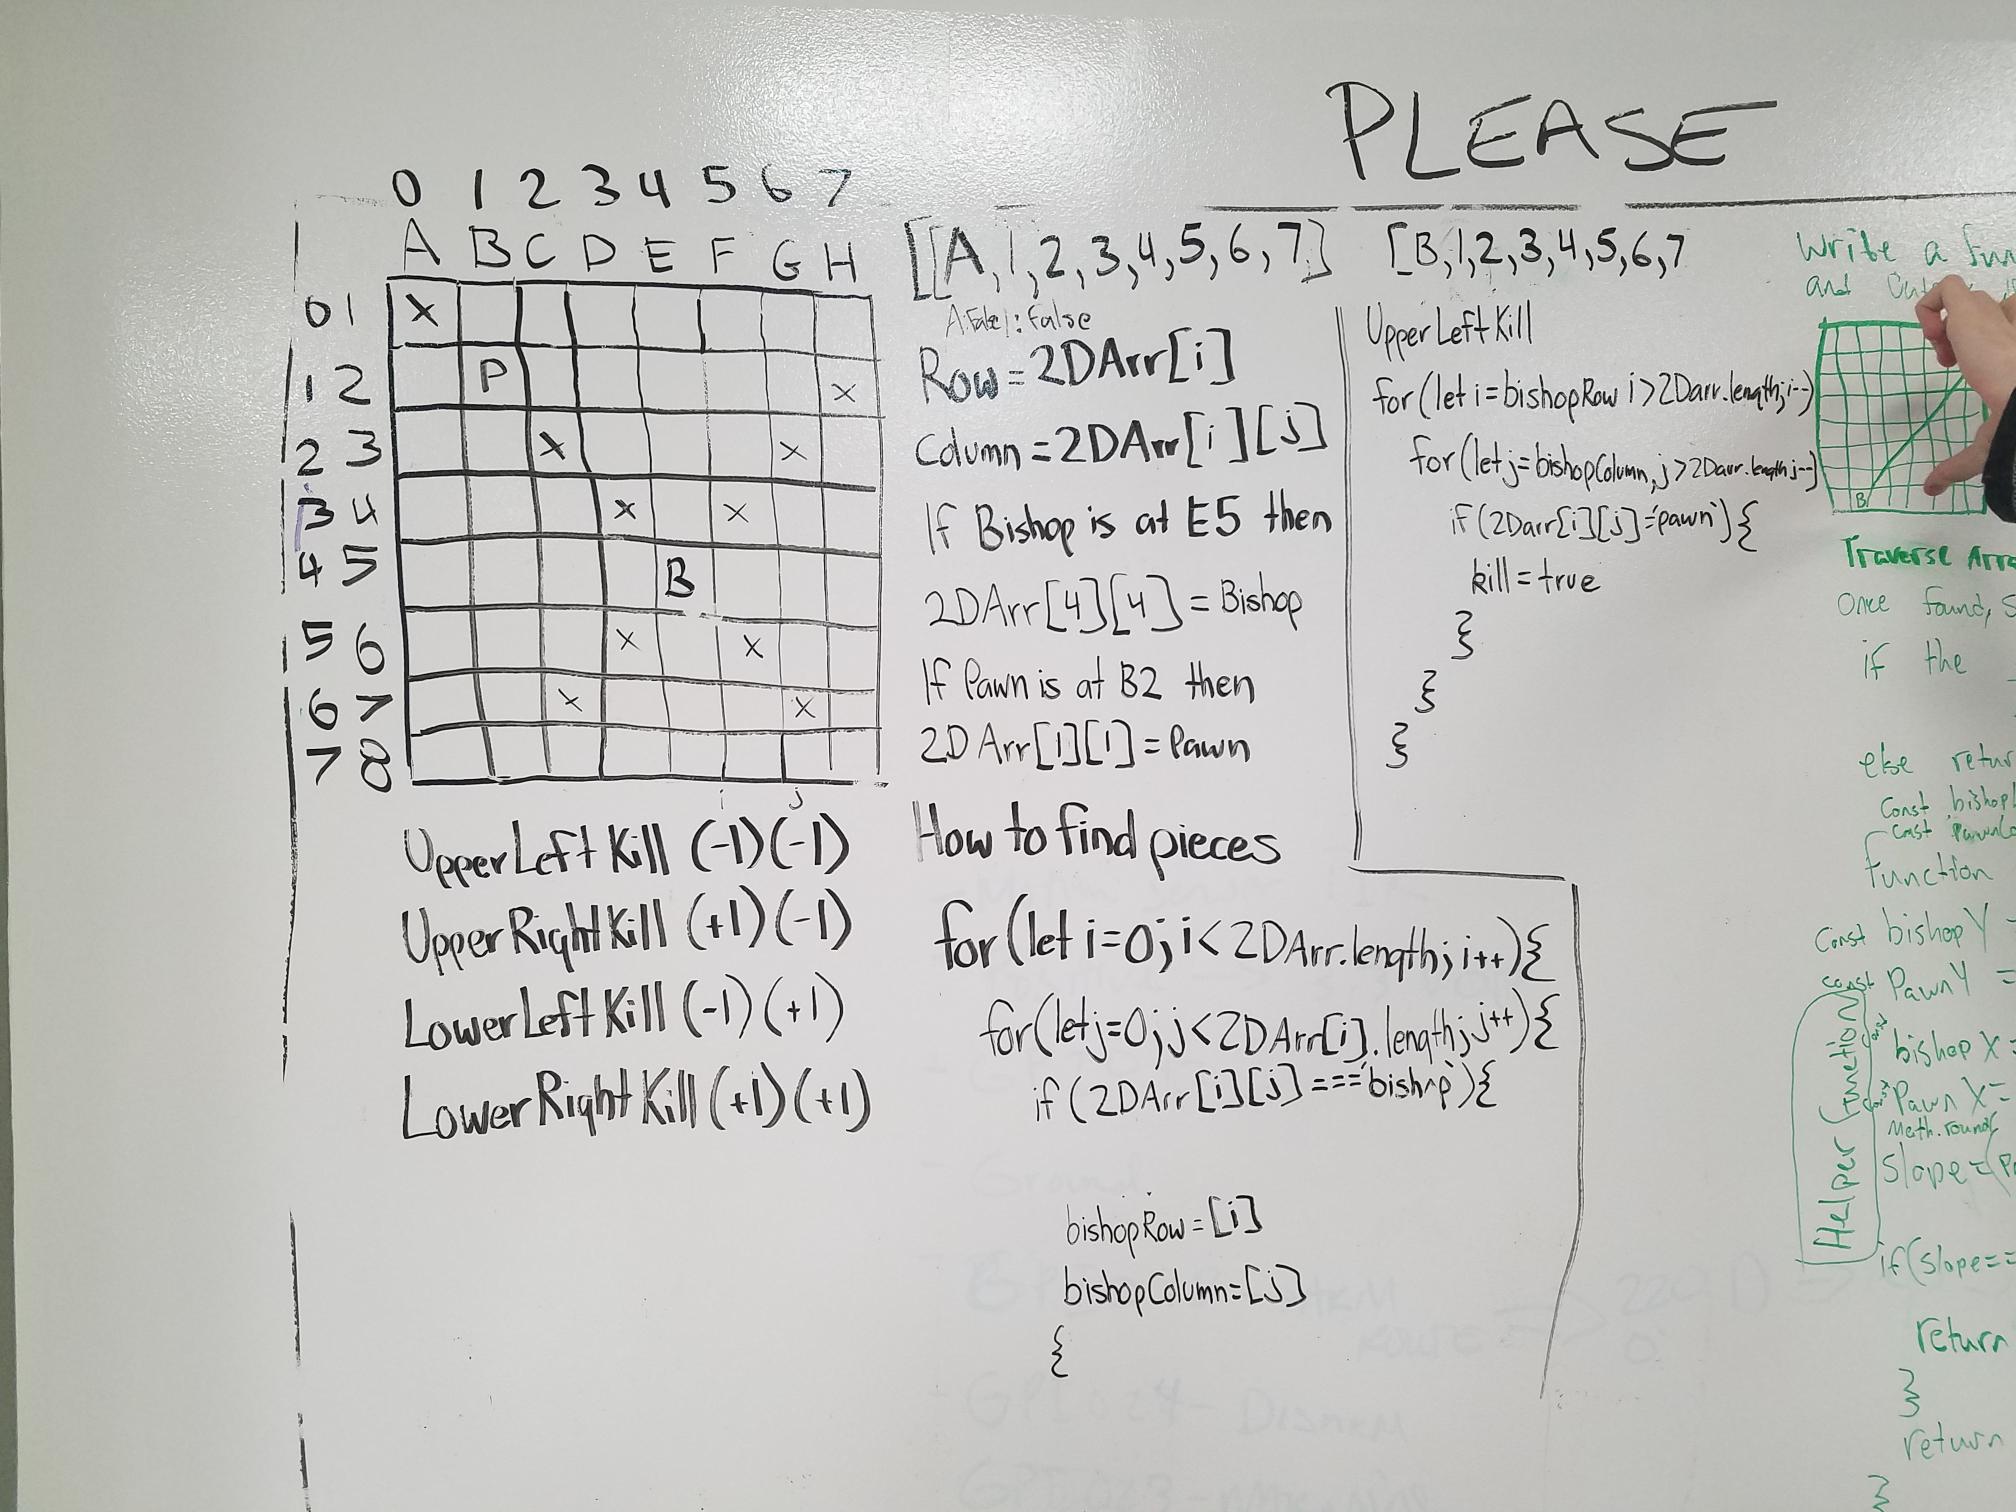 PLEASE
0 1 2 3 4 5 6 7
A B C D E F G H
0 1 X
1 2 P X
2 3 X X
3 4 X X
4 5 B
5 6 X X
6 7 X X
7 8
i j
Upper Left Kill (-1)(-1)
Upper Right Kill (+1)(-1)
Lower Left Kill (-1)(+1)
Lower Right Kill (+1)(+1)
[[A,1,2,3,4,5,6,7] [B,1,2,3,4,5,6,7
1:false
Row = 2DArr[i]
Column = 2DArr[i][j]
If Bishop is at E5 then
2DArr[4][4] = Bishop
If Pawn is at B2 then
2DArr[1][1] = Pawn
How to find pieces
for(let i=0; i< 2DArr.length; i++){
for(let j=0; j<2DArr[i].length; j++){
if (2DArr[i][j] === 'bishop'){
bishopRow = [i]
bishopColumn = [j]
{
Upper Left Kill
for(let i=bishopRow i>2Darr.length; i--)
for(let j=bishopColumn, j>2Darr.length j--)
if(2Darr[i][j]='pawn'){
kill = true
}
}
}
Write a fun
and
B
Traverse Arra
Once found, s
if the
else retur
Const bishop
const Pawn
function
Const bishop Y =
const Pawn Y =
const bishop X =
const Pawn X =
Math.round(
Slope = (P
Helper function
if(slope==
return
}
return
}